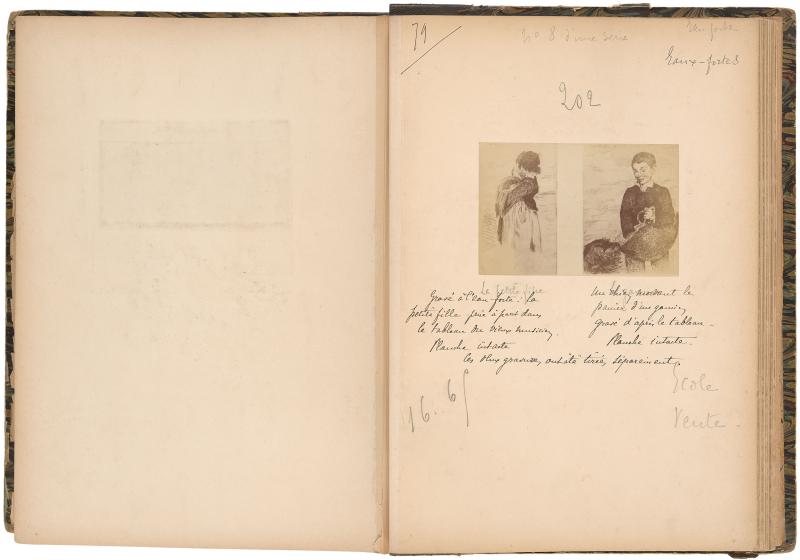 79
No 8 d'une série
Eau forte
Eaux-fortes
202
La petite fille
Gravé à l'eau-forte : la
petite fille prise à part dans
le tableau du vieux musicien.
Planche intacte
Un chien mordant le
panier d'un gamin,
gravé d'après le tableau.
Planche intacte.
les deux gravures, ont été tirées, séparément.
16.6
Ecole
Vente.